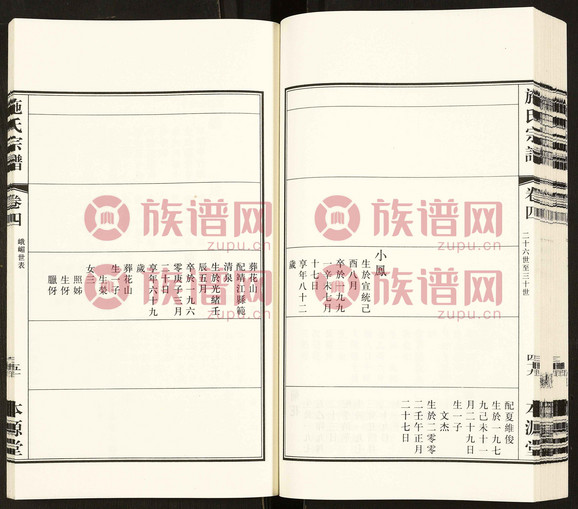 施氏宗譜
卷四
二十六世至三十世
四九
本源堂
小鳳
生於宣統己
酉八月
卒於一九九
一辛未七月
十七日
享年八十二
歲
配夏維俊
生於一九七
九己未十一
月二十九日
生一子
文杰
生於二零零
二壬午正月
二十七日
葬花山
配靖江縣範
清泉
生於光緒壬
辰五月
卒於一九六
零庚子三月
二十日
享年六十九
歲
葬花山
生一子
生榮
女三
照姊
生伢
臘伢
施氏宗譜
卷四
峨嵋世表
五十
本源堂
族谱网
zupu.cn
族谱网
zupu.cn
族谱网
zupu.cn
族谱网
zupu.cn